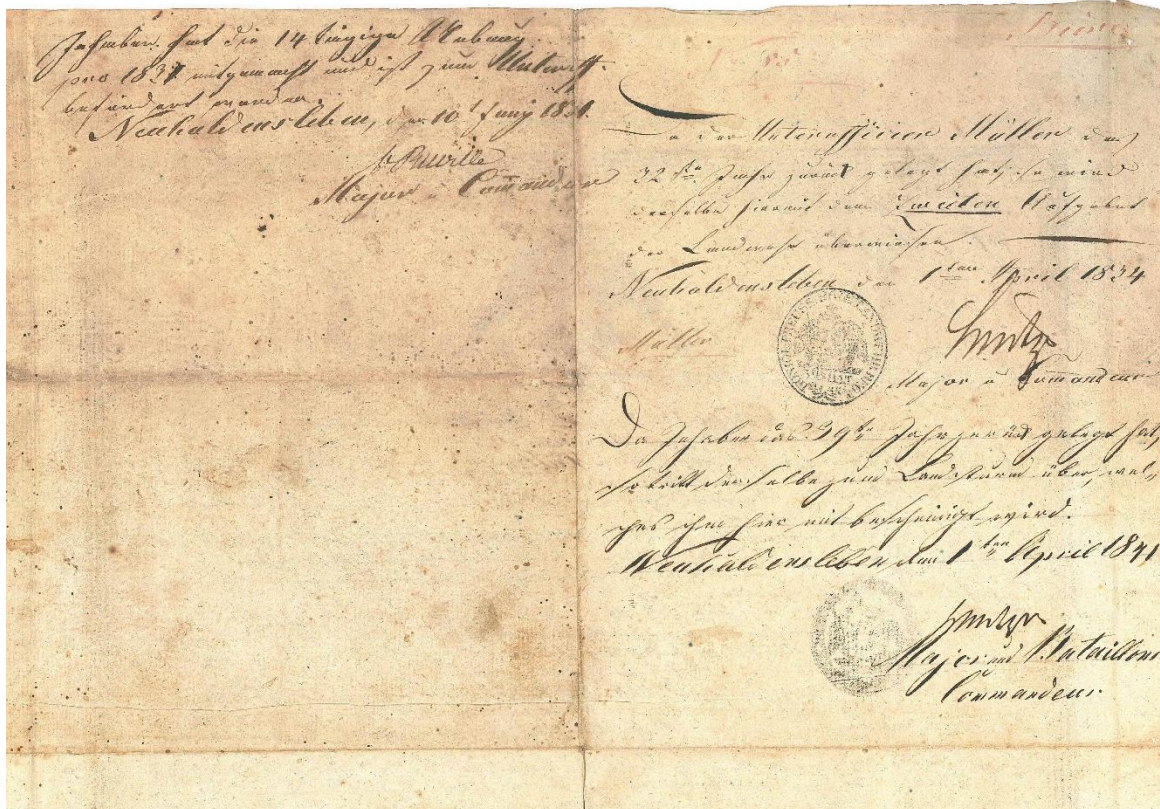 Inhaber hat die 14 tägige Uebung
pro 1831 mitgemacht und ist zum Unteroff.
befördert worden.
Neuhaldensleben, den 10t Juny 1831.
Major u Commandeur
Da der Unterofficier Müller das
32ste Jahr zurück gelegt hat, so wird
derselbe hiermit dem zweiten Aufgebot
der Landwehr überwiesen.
Neuhaldensleben den 1ten April 1834
Müller
Major u Commandeur
Da Inhaber das 39te Jahr zurück gelegt hat,
so tritt derselbe zum Landsturm über, wel-
ches ihm hier mit bescheinigt wird.
Neuhaldensleben den 1ten April 1841
Major und Bataillons
Commandeur.